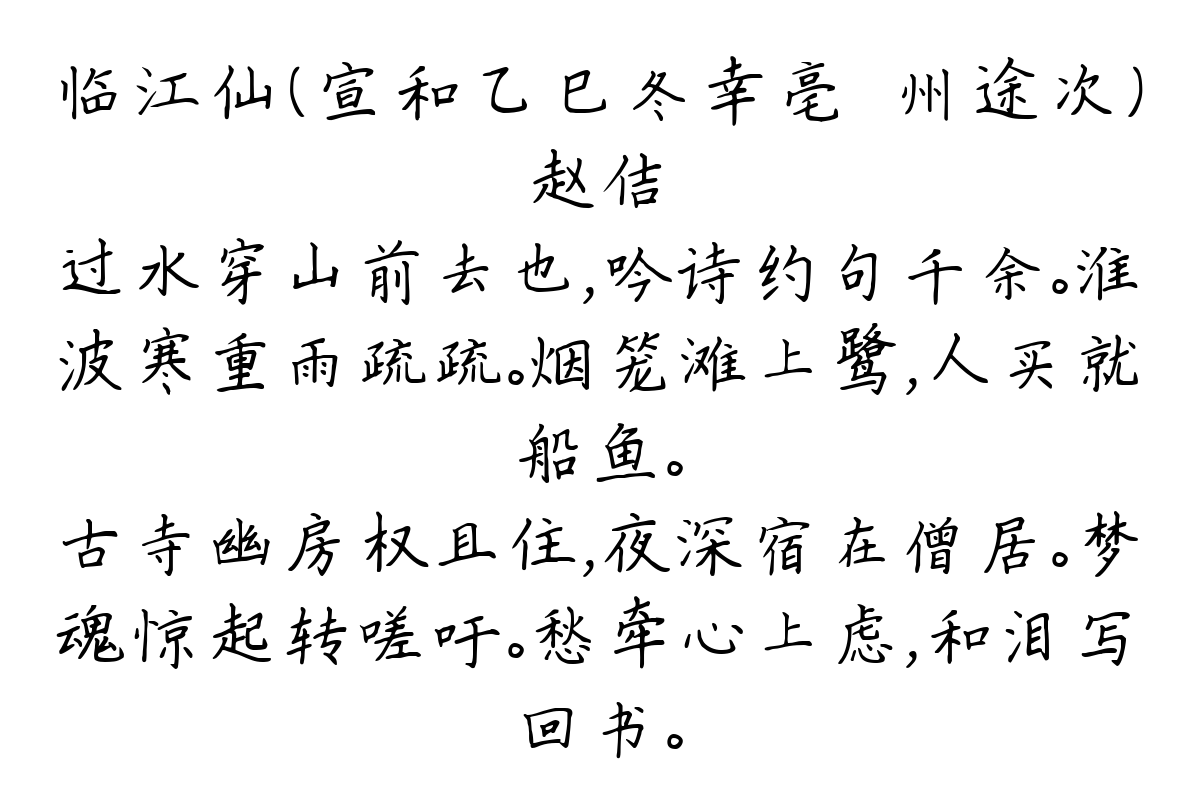 临江仙(宣和乙巳冬幸亳 州途次)
赵佶
过水穿山前去也,吟诗约句千余。淮
波寒重雨疏疏。烟笼滩上鹭,人买就
船鱼。
古寺幽房权且住,夜深宿在僧居。梦
魂惊起转嗟吁。愁牵心上虑,和泪写
回书。